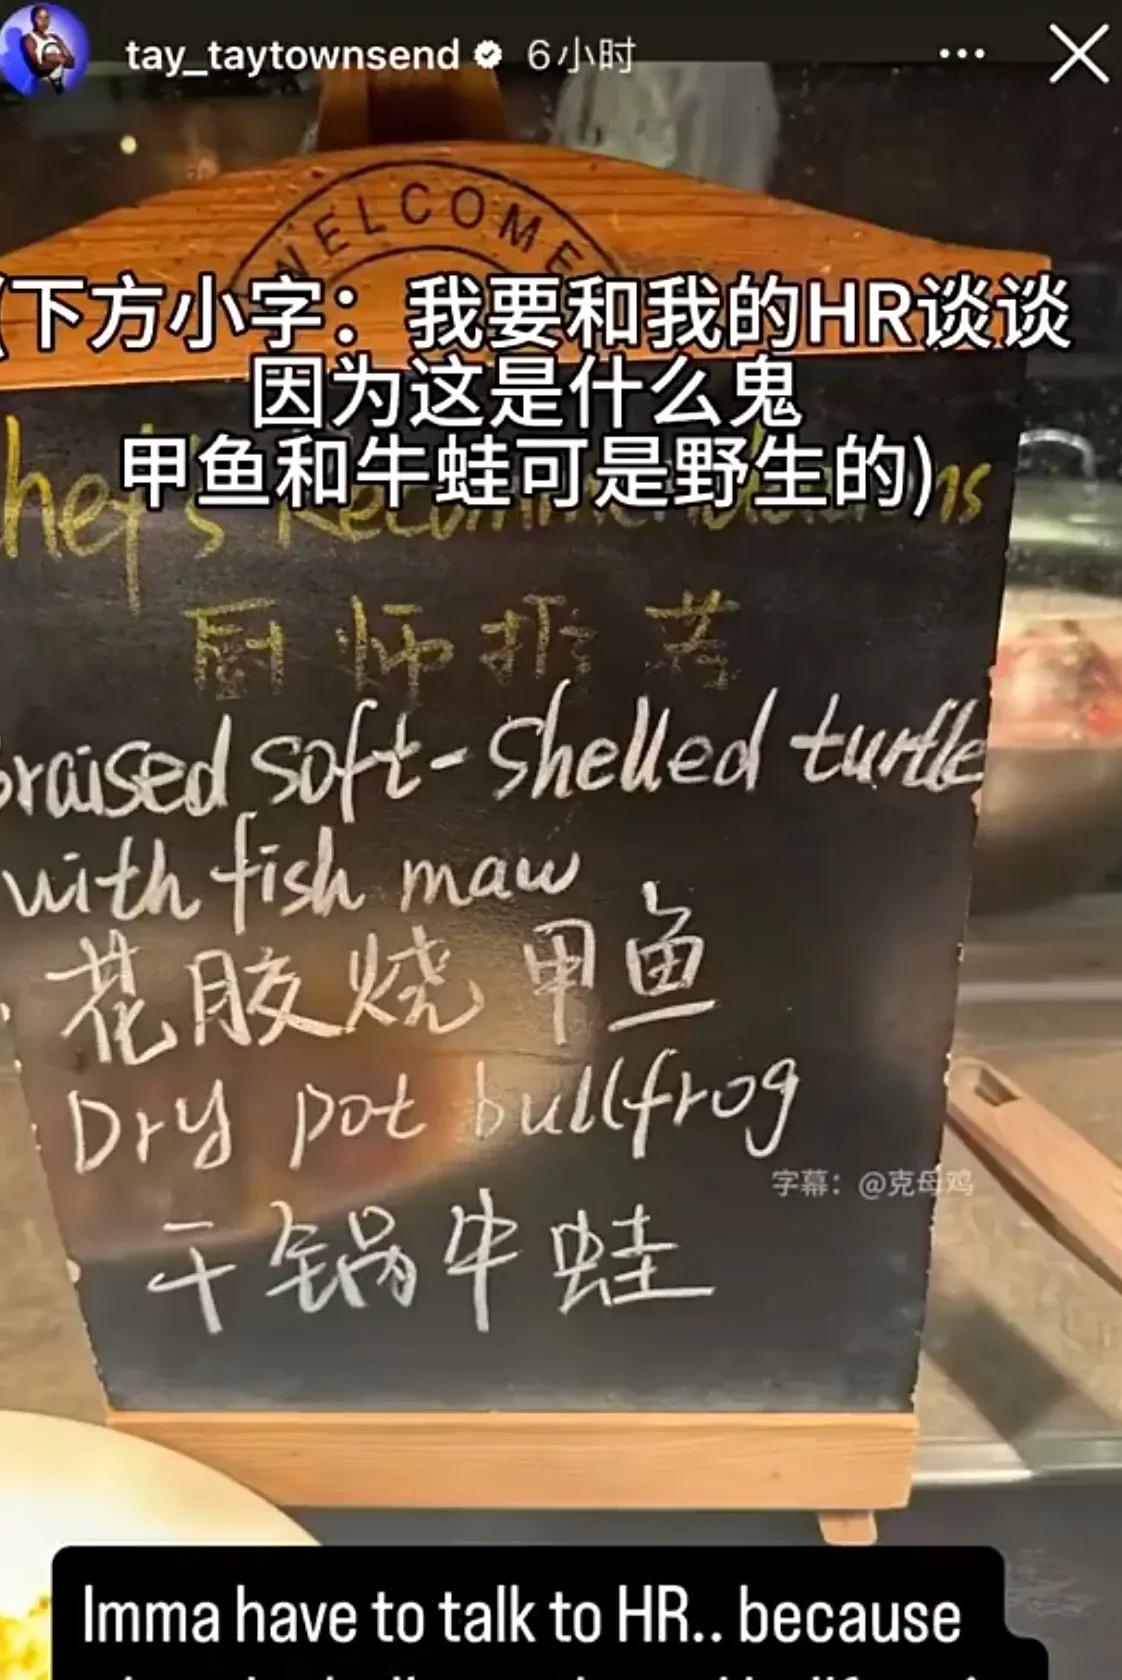 tay_taytownsend 6小时
WELCOME
(下方小字：我要和我的HR谈谈
因为这是什么鬼
甲鱼和牛蛙可是野生的)
hef's Recommendations
厨师推荐
Braised soft-shelled turtle
with fish maw
花胶烧甲鱼
Dry pot bullfrog
字幕：@克母鸡
干锅牛蛙
Imma have to talk to HR.. because